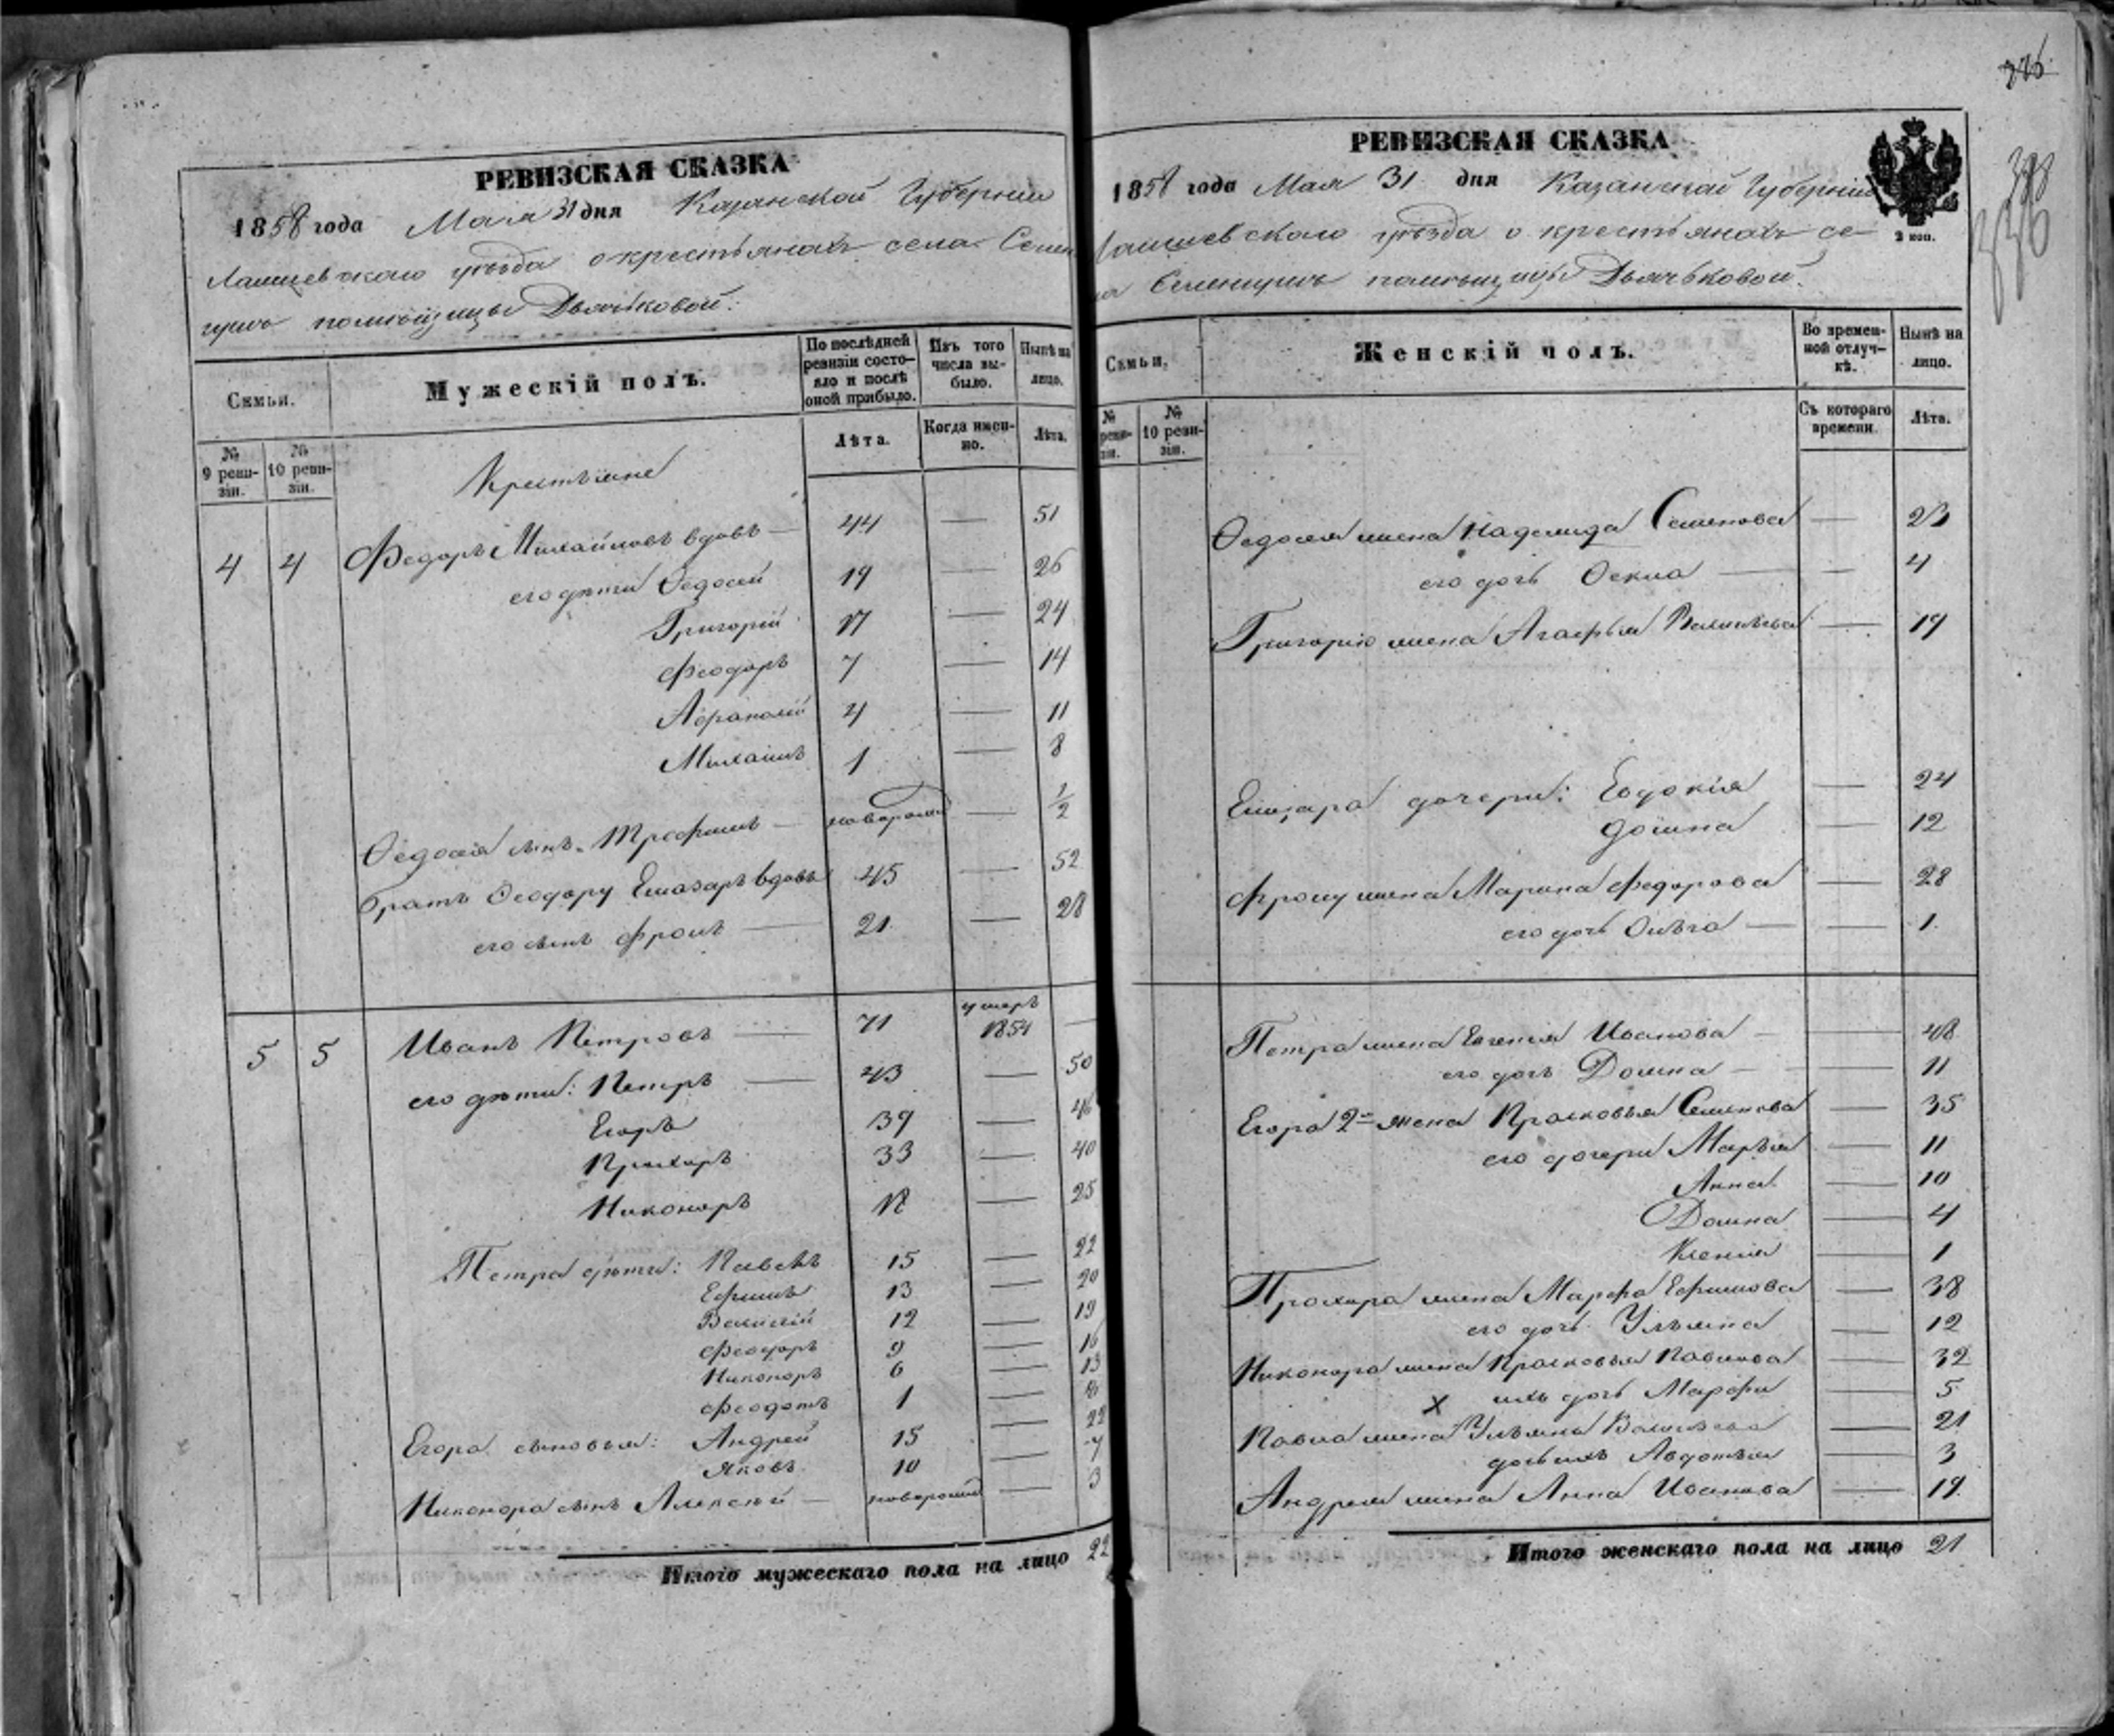 РЕВИЗСКАЯ СКАЗКА
1858 года Мая 31 дня Казанской Губерніи
Лаишевскаго уѣзда о крестьянахъ села
помѣщицы Дьячьковой.
Семьи.
Мужескій полъ.
По послѣдней ревизіи состояло и послѣ оной прибыло.
Изъ того числа выбыло.
Нынѣ на лицо.
№ 9 ревизіи.
№ 10 ревизіи.
Лѣта.
Когда именно.
Лѣта.
Крестьяне
4 4 Федоръ Михайловъ вдовъ — 44 — 51
его дѣти Ѳедосей 19 — 26
Григорій 17 — 24
Феодоръ 7 — 14
4 — 11
Михаилъ 1 — 8
Ѳедосѣя сынъ Трофимъ — — 1/2
братъ Ѳеодору Елиазаръ вдовъ 45 — 52
его сынъ Фролъ — 21 — 28
5 5 Иванъ Петровъ — 71 умеръ 1854 —
его дѣти: Петръ — 43 — 50
Егоръ 39 — 46
Прохоръ 33 — 40
Никоноръ 18 — 25
Петра дѣти: Павелъ 15 — 22
Ефимъ 13 — 20
Василій 12 — 19
Феодоръ 9 — 16
Никоноръ 6 — 13
Феодотъ 1 — 8
Егора сыновья: Андрей 15 — 22
Яковъ 10 —
Никонора сынъ Алексѣй — — 3
Итого мужескаго пола на лицо 22
226
РЕВИЗСКАЯ СКАЗКА
1858 года Мая 31 дня Казанской Губерніи
Лаишевскаго уѣзда о крестьянахъ се
ла помѣщицы Дьячьковой.
2 коп.
Семьи.
Женскій полъ.
Во временной отлучкѣ.
Нынѣ на лицо.
№ ревизіи.
№ 10 ревизіи.
Съ котораго времени.
Лѣта.
Ѳедосея жена Надежда Семенова — 23
его дочь — — 4
Григорія жена Агафья Васильева — 19
дочери: Евдокія — 24
Домна — 12
Фролу жена Марина Федорова — 28
его дочь Ольга — — 1
Петра жена Евгенія Иванова — — 48
его дочь Домна — — 11
Егора 2я жена Прасковья Семенова — 35
его дочери Марья — 11
Анна — 10
Домна — 4
Ксенія — 1
Прохора жена Марфа Ефимова — 38
его дочь Ульяна — 12
Никонора жена Прасковья Павлова — 32
х ихъ дочь Марфа — 5
Павла жена Ульяна Васильева — 21
дочь ихъ Авдотья — 3
Андрея жена Анна Иванова — 19
Итого женскаго пола на лицо 21